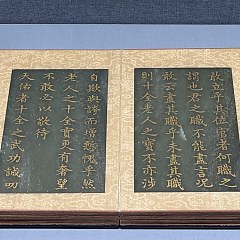 敢立乎其位官者何職
謂也君之職不能盡言況
敢云盡其職乎未盡其職
則十全老人之寶不亦涉
自欺與誇而增慙恧乎然
老人之十全實更有奢望
不敢必以敬待
天佑者十全之武功誠叨